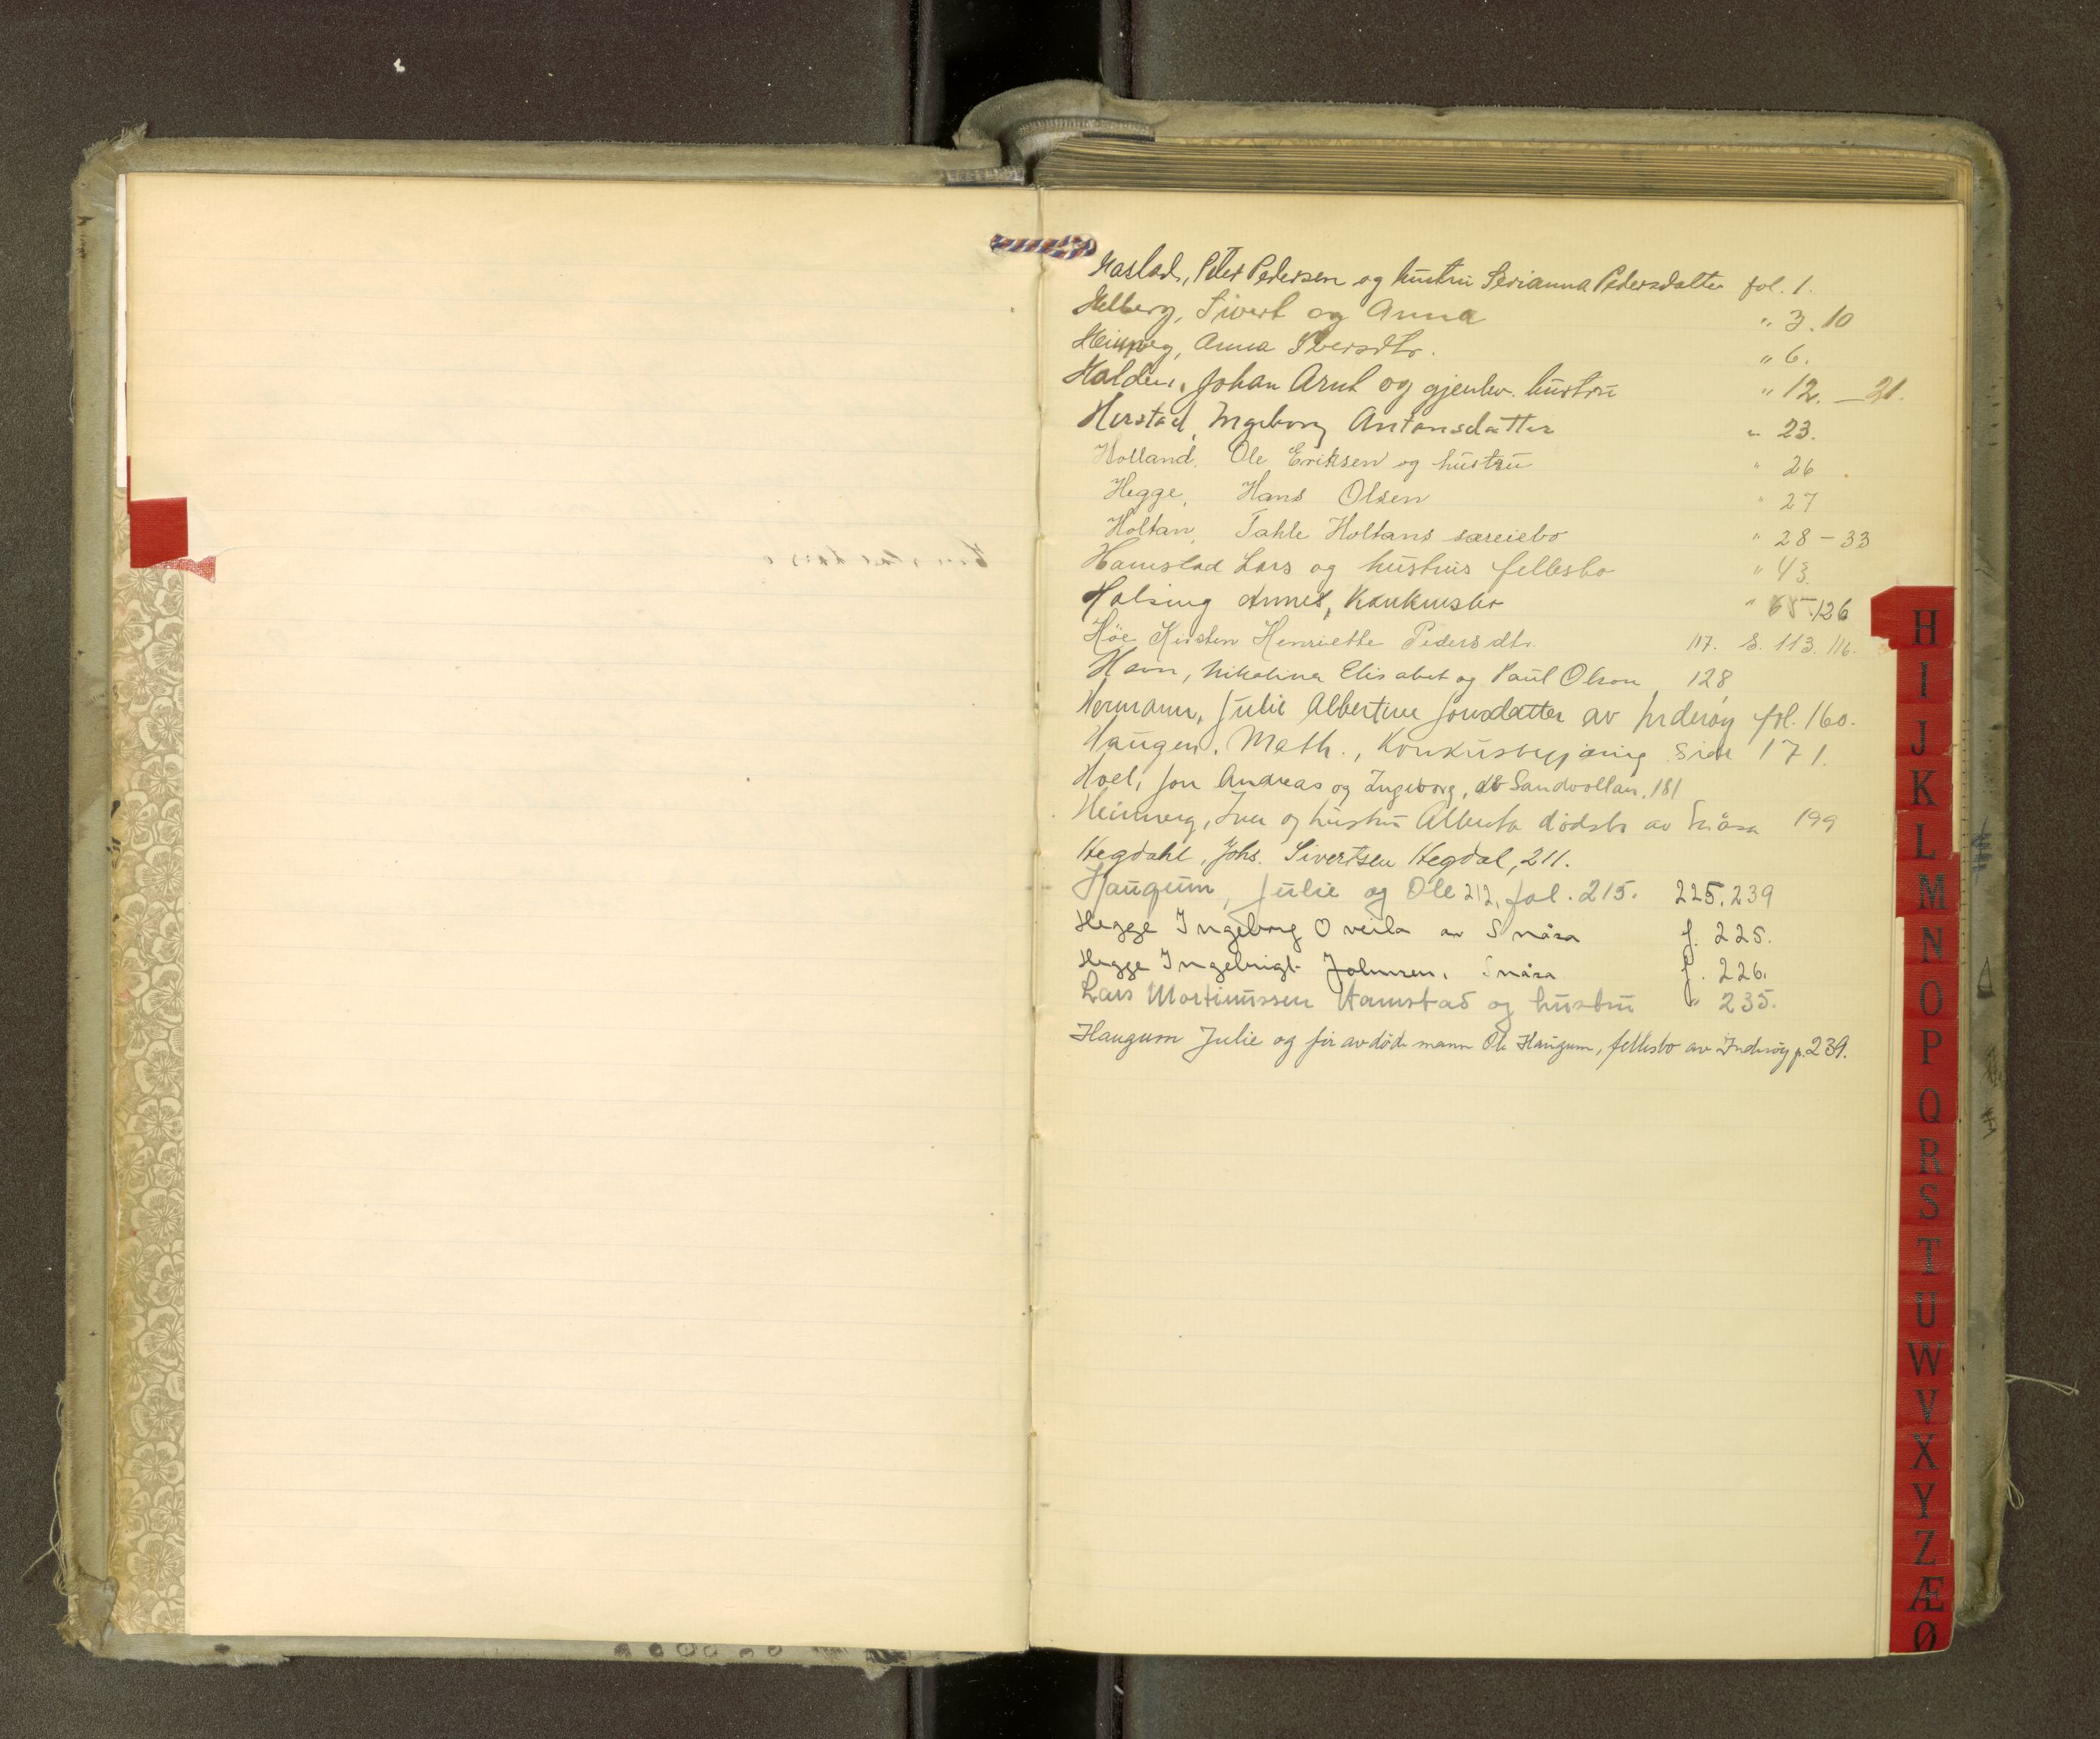 Haslad, Peter Pedersen og hustru Serianna Pedersdatter fol. 1.
Helberg, Sivert og Anna " 3. 10
Heimveg, Anna Iversdtr. " 6.
Halden, Johan Arnt og gjenlev. hustru " 12. – 21.
Herstad, Ingeborg Antonsdatter " 23.
Holland, Ole Eriksen og hustru " 26
Hegge, Hans Olsen " 27
Holtan, Tahle Holtans særeiebo " 28 – 33
Hamstad Lars og hustrus fellesbo " 43.
Halsing Konkursbo " 126
Høe Kirsten Henriette Pedersdtr. 117. S. 113. 116.
Havn, Nikolina Elisabet og Paul Olson 128
Hermann, Julie Albertine Jonsdatter av Inderøy fol. 160.
Haugen, Math., Konkursbegjæring side 171.
Hoel, Jon Andreas og Ingeborg, db Sandvollan, 181
Heimveg, Iver og hustru Alberta dødsbo av Snåsa 199
Hegdahl, Johs. Sivertsen Hegdal, 211.
Haugum, Julie og Ole 212, fol. 215. 225, 239
Hegge Ingeborg Oveila av Snåsa f. 225.
Hegge Ingebrigt Johnsen, Snåsa f. 226.
Lars Mortinussen Hamstad og hustru " 235.
Haugum Julie og før avdøde mann Ole Haugum, fellesbo av Inderøy p. 239.
H
I
J
K
L
M
N
O
P
Q
R
S
T
U
W
V
X
Y
Z
Æ
Ø